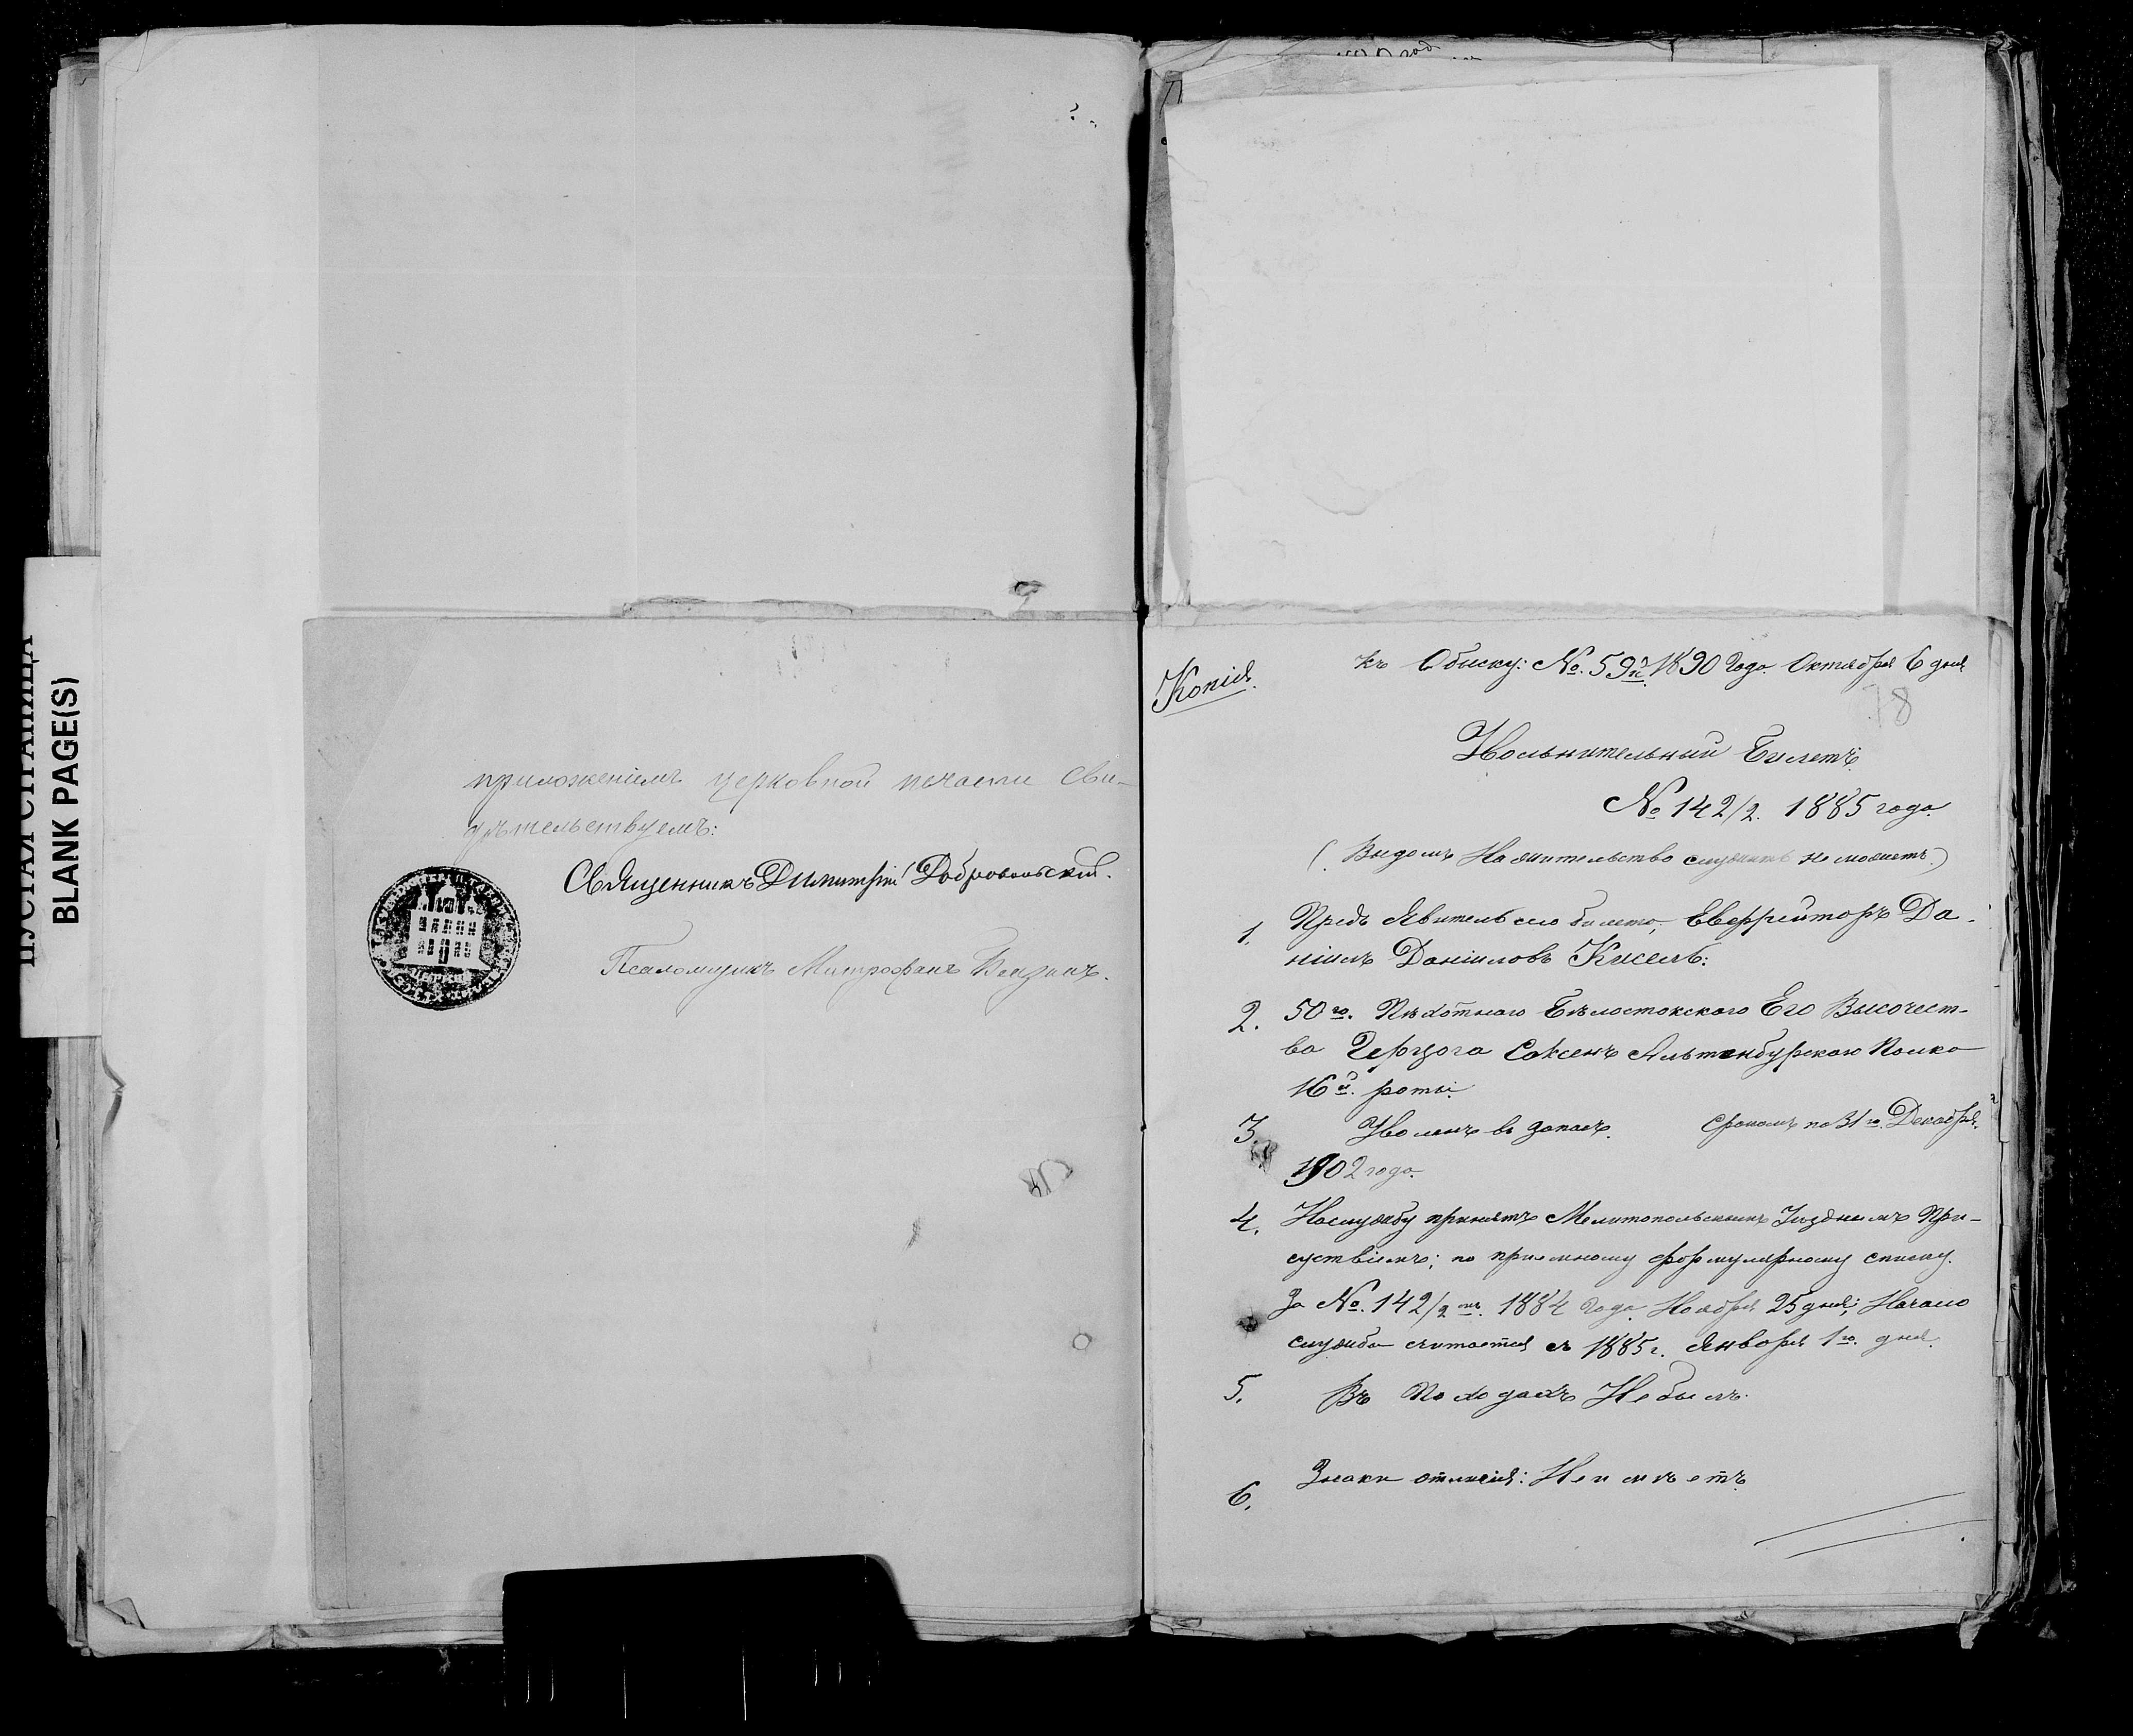 BLANK PAGE(S)
приложеніемъ церковной печати сви-
дѣтельствуемъ:
Священникъ Димитрій Добровольскій.
Псаломщикъ Митрофанъ
Копія.
къ Обыску: №. 59й. 1890 года. Октября 6 дня
78
Увольнительный Билетъ.
№ 142/2. 1885 года.
(Видомъ на жительство служить не можетъ.)
1. Предъ Явитель сего билета, Еверрейторъ Да-
ніилъ Даниловъ Кисель:
2. 50го. Пѣхотнаго Бѣлостокского Его Высочест-
ва Герцога Саксенъ Альтенбургскаго Полка
16й. роты.
3. Уволенъ въ запасъ. Срокомъ по 31го. Декабря.
1902 года.
4. На службу принятъ Мелитопольскимъ Уѣзднымъ При-
суствіемъ; по приемному формулярному списку.
За №. 142/2мъ. 1884 года. Ноября 25 дня; Начало
службы считается съ 1885 г. Января 1го. дня.
5. Въ Походахъ Не былъ.
6. Знаки отличія: Не имѣетъ.